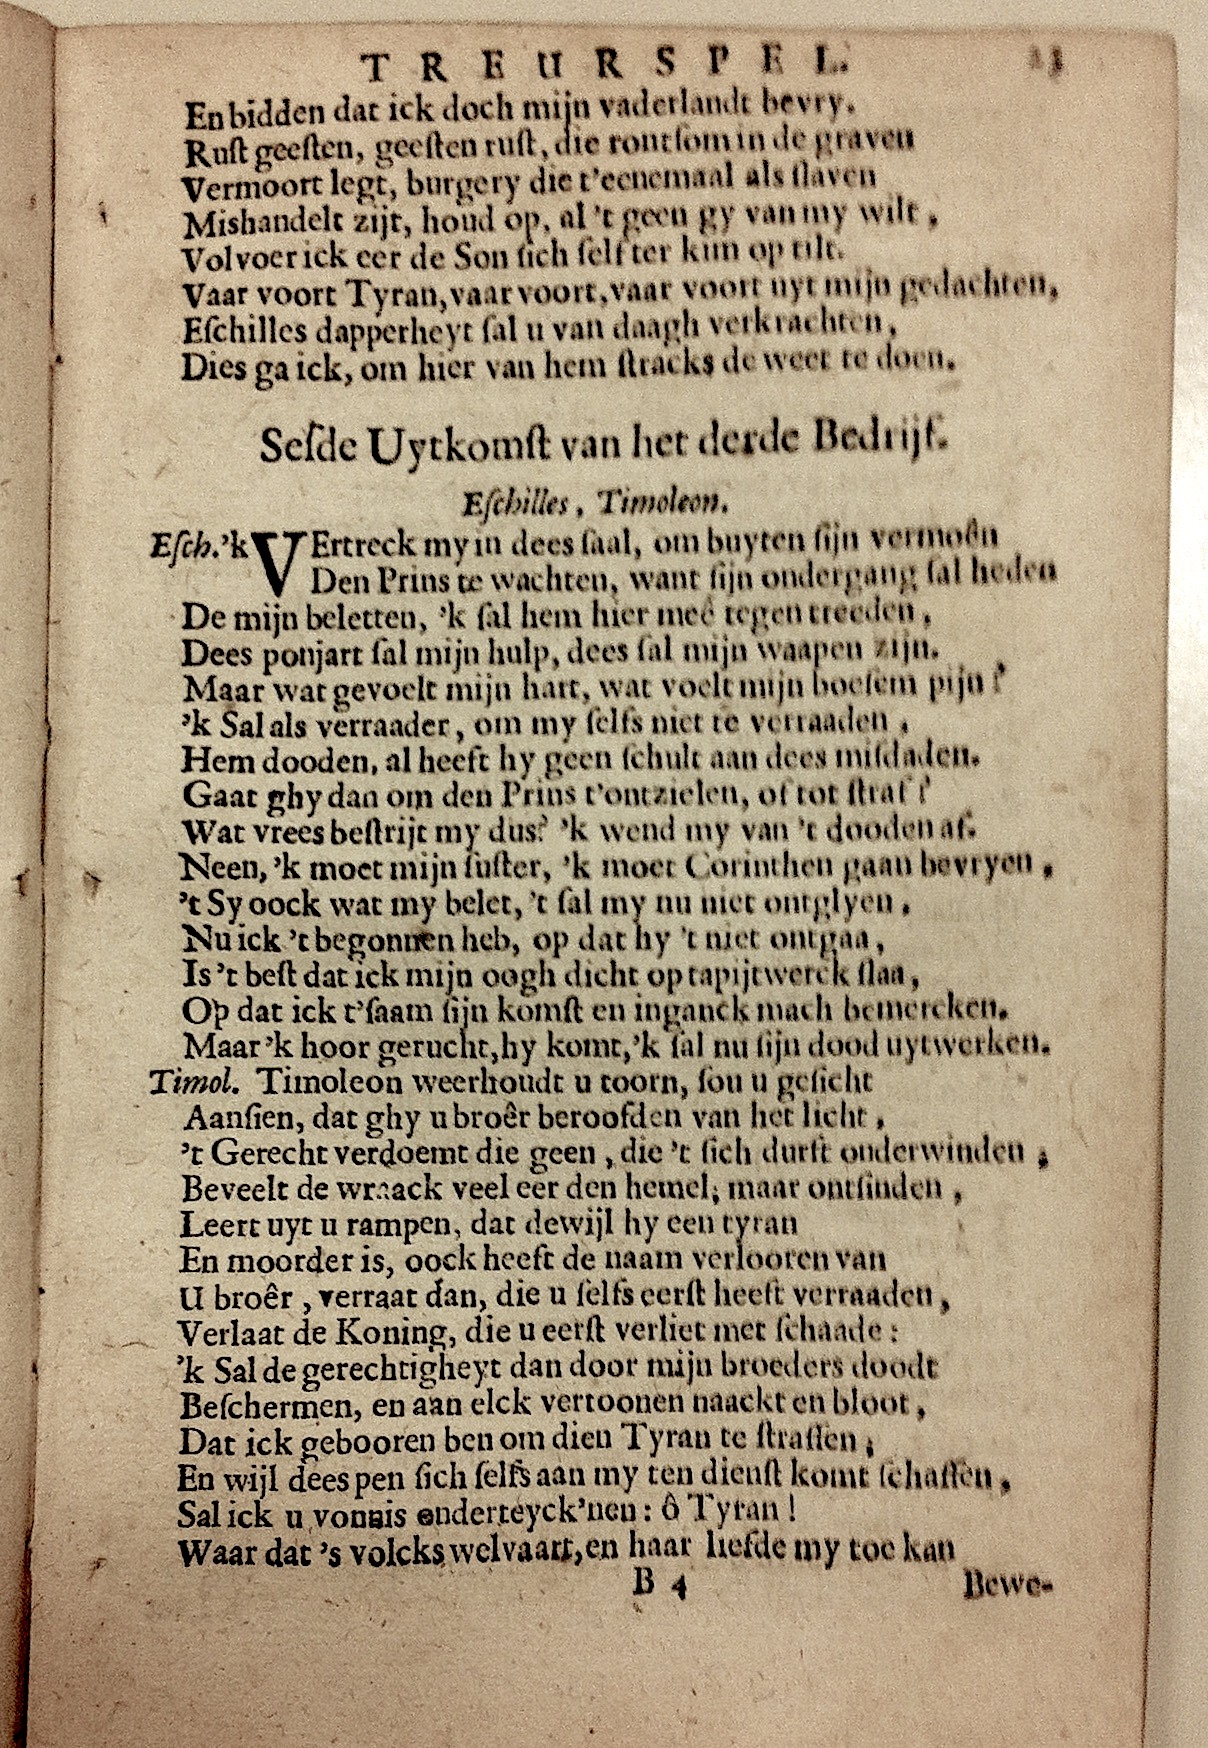 TREURSPEL. 23
En bidden dat ick doch mijn vaderlandt bevry.
Rust geesten, geesten rust, die rontsom in de graven
Vermoort legt, burgery die t'eenemaal als slaven
Mishandelt zijt, houd op, al 't geen gy van my wilt,
Volvoer ick eer de Son sich self ter kim op tilt.
Vaar voort Tyran, vaar voort, vaar voort uyt mijn gedachten,
Eschilles dapperheyt sal u van daagh verkrachten,
Dies ga ick, om hier van hem stracks de weet te doen.
Sesde Uytkomst van het derde Bedrijf.
Eschilles, Timoleon.
Esch. 'k VErtreck my in dees saal, om buyten sijn vermoên
Den Prins te wachten, want sijn ondergang sal heden
De mijn beletten, 'k sal hem hier meê tegen treeden,
Dees ponjart sal mijn hulp, dees sal mijn waapen zijn.
Maar wat gevoelt mijn hart, wat voelt mijn boesem pijn?
'k Sal als verraader, om my selfs niet te verraaden,
Hem dooden, al heeft hy geen schult aan dees misdaden.
Gaat ghy dan om den Prins t'ontzielen, of tot straf?
Wat vrees bestrijt my dus? 'k wend my van 't dooden af.
Neen, 'k moet mijn suster, 'k moet Corinthen gaan bevryen,
't Sy oock wat my belet, 't sal my nu niet ontglyen,
Nu ick 't begonnen heb, op dat hy 't niet ontgaa,
Is 't best dat ick mijn oogh dicht op tapijtwerck slaa,
Op dat ick t'saam sijn komst en inganck mach bemercken.
Maar 'k hoor gerucht, hy komt, 'k sal nu sijn dood uytwerken.
Timol. Timoleon weerhoudt u toorn, sou u gesicht
Aansien, dat ghy u broêr beroofden van het licht,
't Gerecht verdoemt die geen, die 't sich durft onderwinden;
Beveelt de wraack veel eer den hemel; maar ontsinden,
Leert uyt u rampen, dat dewijl hy een tyran
En moorder is, oock heeft de naam verlooren van
U broêr, verraat dan, die u selfs eerst heeft verraaden,
Verlaat de Koning, die u eerst verliet met schaade:
'k Sal de gerechtigheyt dan door mijn broeders doodt
Beschermen, en aan elck vertoonen naackt en bloot,
Dat ick gebooren ben om dien Tyran te straffen;
En wijl dees pen sich selfs aan my ten dienst komt schaffen,
Sal ick u vonnis onderteyck'nen: ô Tyran!
Waar dat 's volcks welvaart, en haar liefde my toe kan
B 4 Bewe-